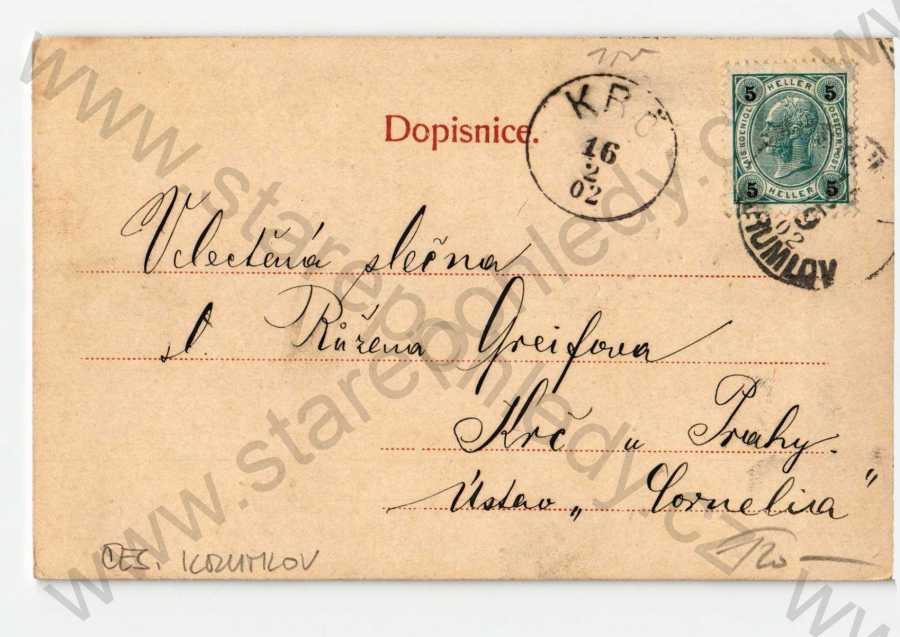 Dopisnice.
KRČ
16
2
02
5 HELLER 5
5 HELLER 5
02
KRUMLOV
Velectěná slečna
sl. Růžena Greifova
Krč u Prahy.
Ústav „Cornelia"
ČES. KRUMLOV
120 —
www.starepohledy.cz